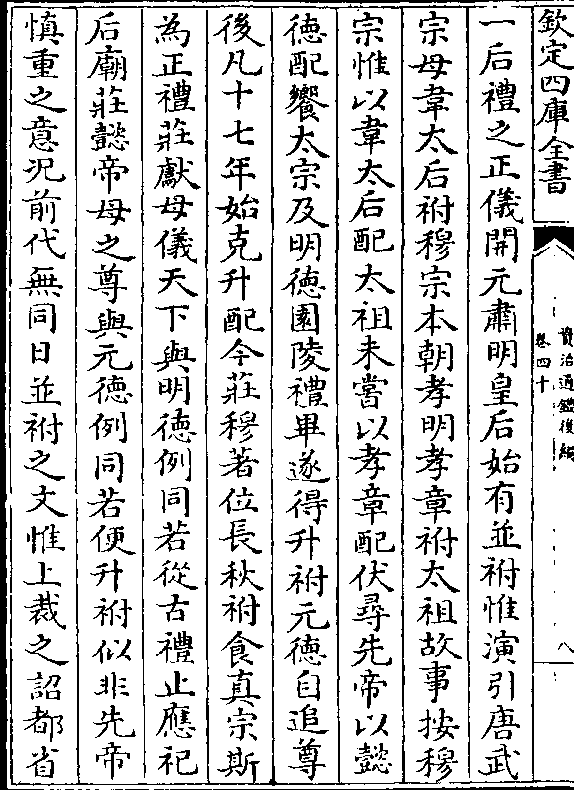 欽定四庫全書
資治通鑑後編
卷四十
八
一后禮之正儀開元肅明皇后始有並祔惟演引唐武
宗母韋太后祔穆宗本朝孝明孝章祔太祖故事按穆
宗惟以韋太后配太祖未嘗以孝章配伏尋先帝以懿
徳配饗太宗及明徳園陵禮畢遂得升祔元徳自追尊
後凡十七年始克升配今莊穆著位長秋祔食真宗斯
為正禮莊獻母儀天下與明徳例同若從古禮止應祀
后廟莊懿帝母之尊與元徳例同若便升祔似非先帝
慎重之意况前代無同日並祔之文惟上裁之詔都省